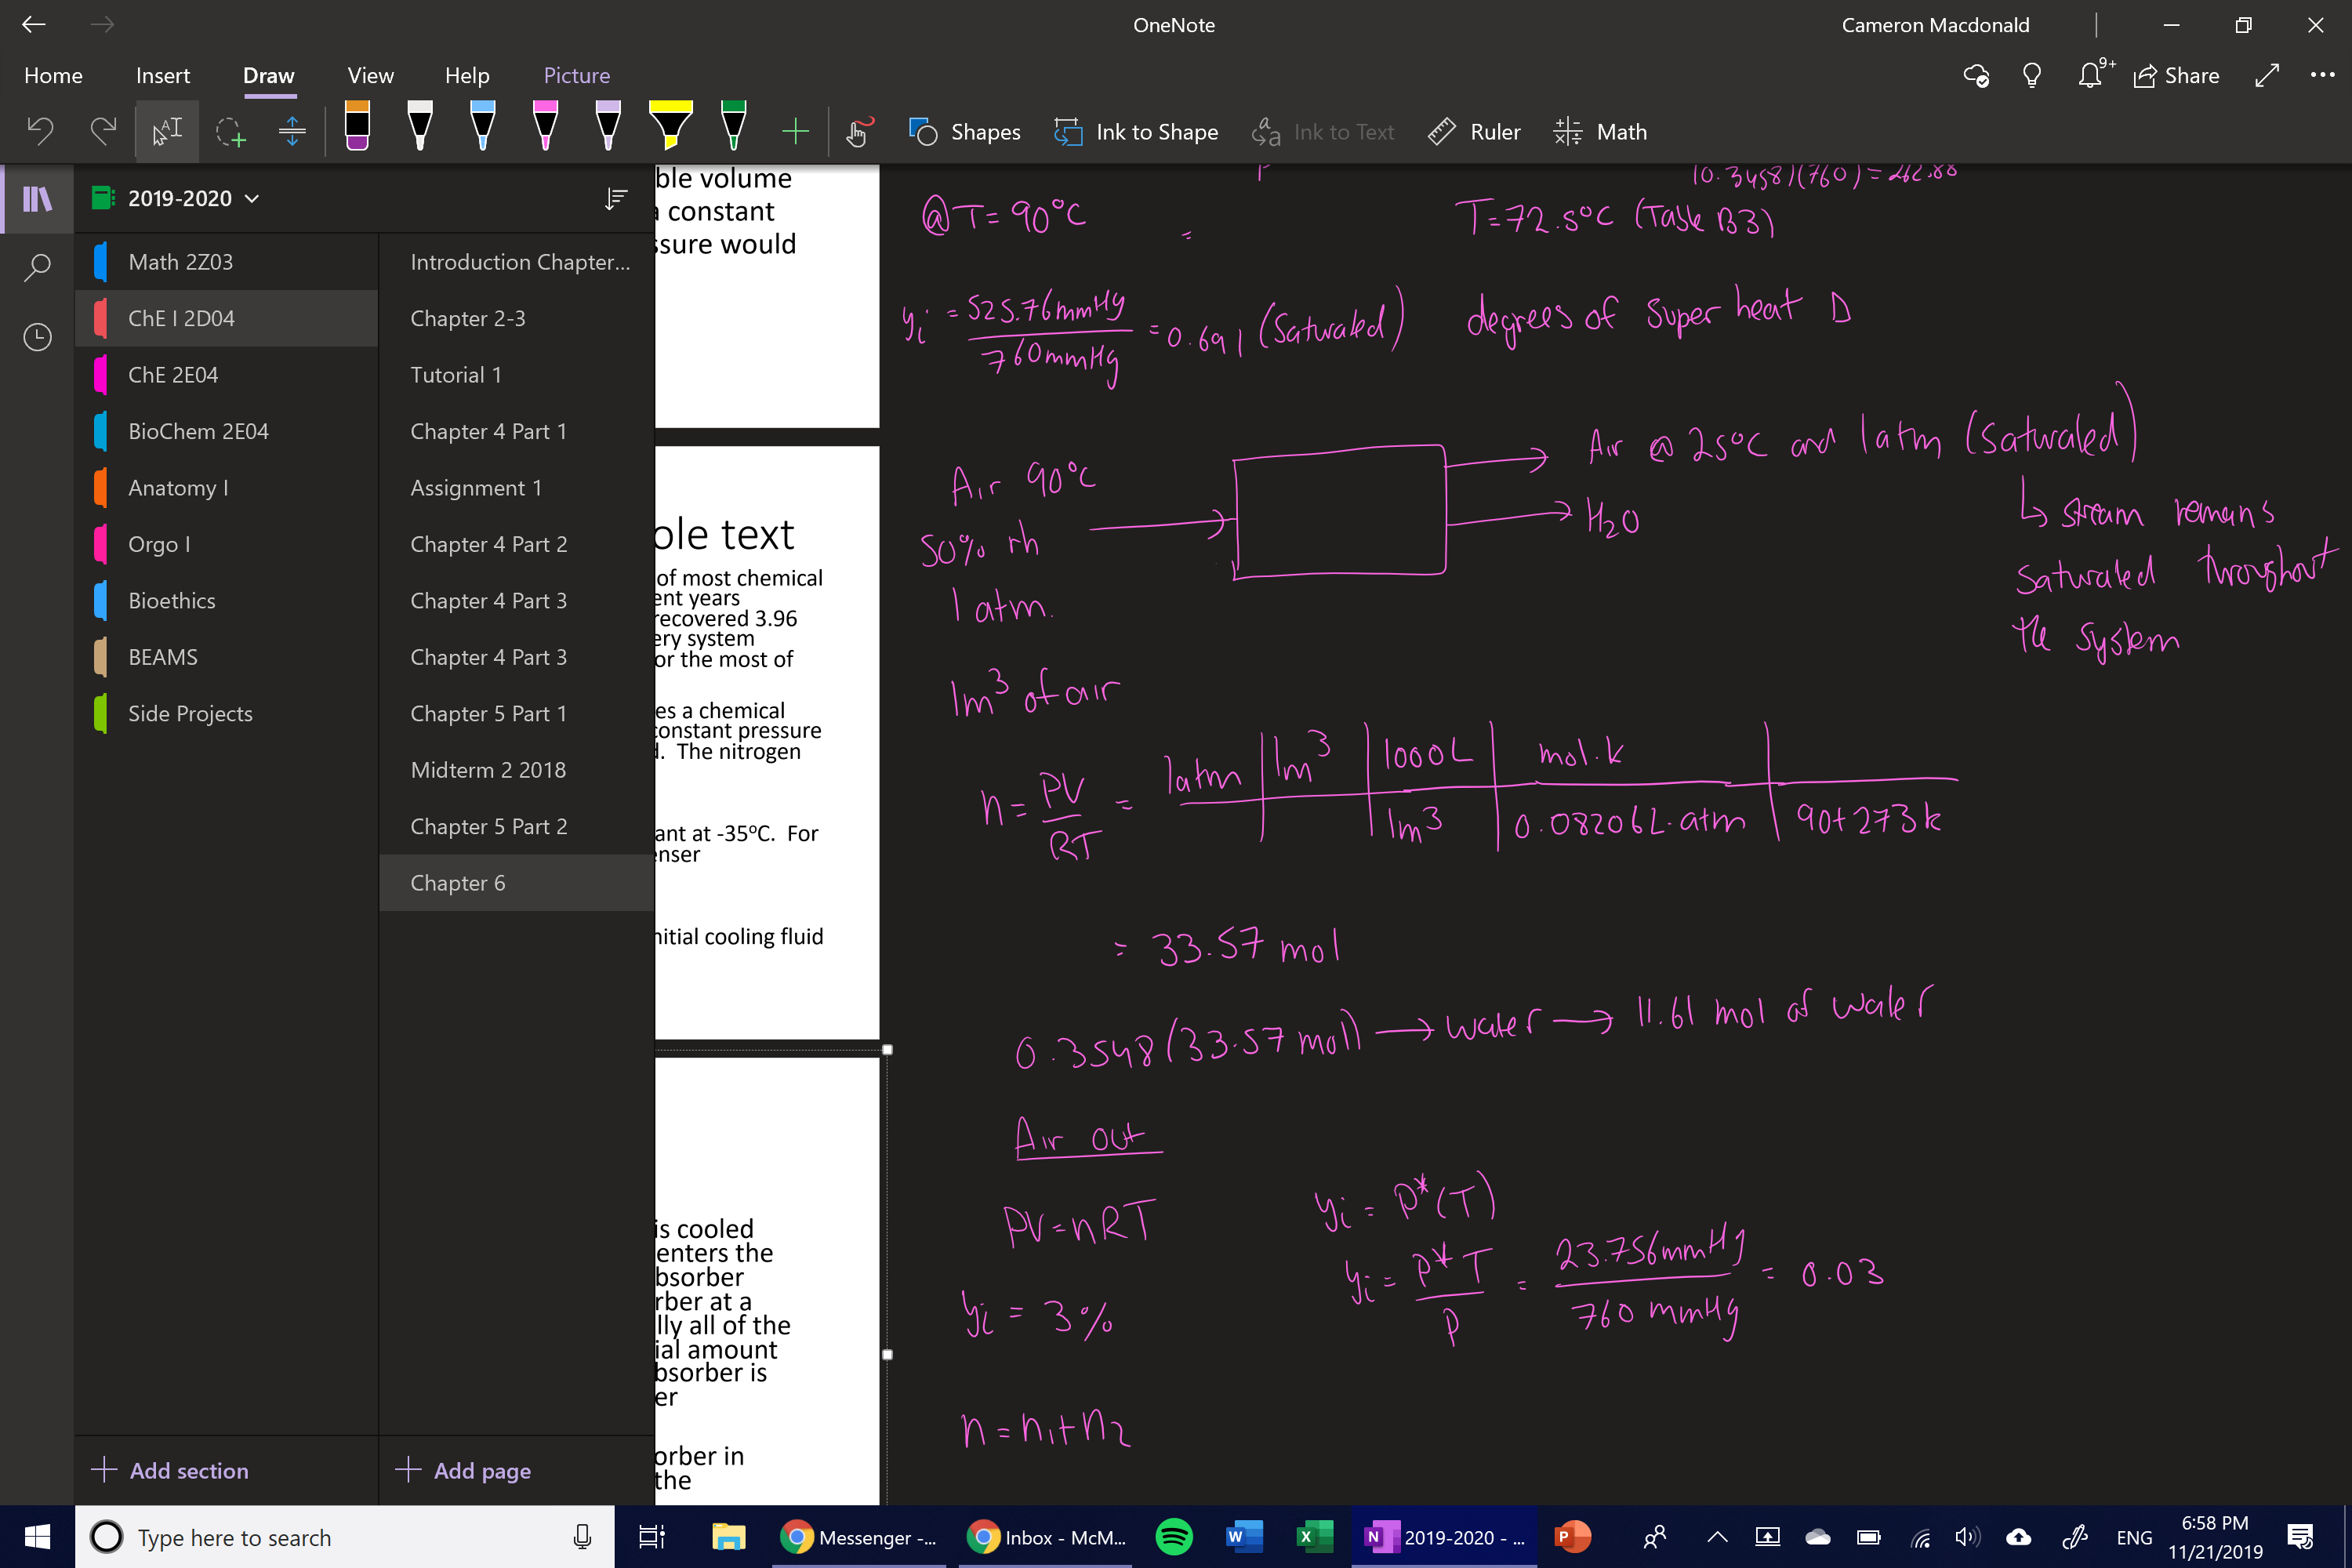 OneNote
Cameron Macdonald
Home Insert Draw View Help Picture
9+
Share
Shapes
Ink to Shape
Ink to Text
Ruler
Math
2019-2020
Math 2Z03
ChE I 2D04
ChE 2E04
BioChem 2E04
Anatomy I
Orgo I
Bioethics
BEAMS
Side Projects
Add section
Introduction Chapter...
Chapter 2-3
Tutorial 1
Chapter 4 Part 1
Assignment 1
Chapter 4 Part 2
Chapter 4 Part 3
Chapter 4 Part 3
Chapter 5 Part 1
Midterm 2 2018
Chapter 5 Part 2
Chapter 6
Add page
ble volume
constant
ssure would
ole text
of most chemical
ent years
recovered 3.96
ery system
or the most of
es a chemical
constant pressure
. The nitrogen
ant at -35°C. For
enser
nitial cooling fluid
is cooled
enters the
bsorber
rber at a
lly all of the
ial amount
bsorber is
er
orber in
the
(0.3458)(760) = 262.88
@T= 90°C
=
T=72.5°C (Table B3)
yi = 525.76mmHg / 760mmHg = 0.691 (Saturated)
degrees of super heat D
Air 90°C
50% rh
1 atm.
Air @ 25°C and 1 atm (Saturated)
H2O
↳ stream remains
saturated throughout
the system
1m³ of air
n = PV/RT = 1atm | 1m³ | 1000L | mol.k
1m³ | 0.08206L.atm | 90+273k
= 33.57 mol
0.3548(33.57 mol) → water → 11.61 mol of water
Air out
PV=nRT
yi = P*(T)
yi = P* T / P = 23.756mmHg / 760 mmHg = 0.03
yi = 3%
n = n1+n2
Type here to search
Messenger -...
Inbox - McM...
2019-2020 - ...
ENG
6:58 PM
11/21/2019